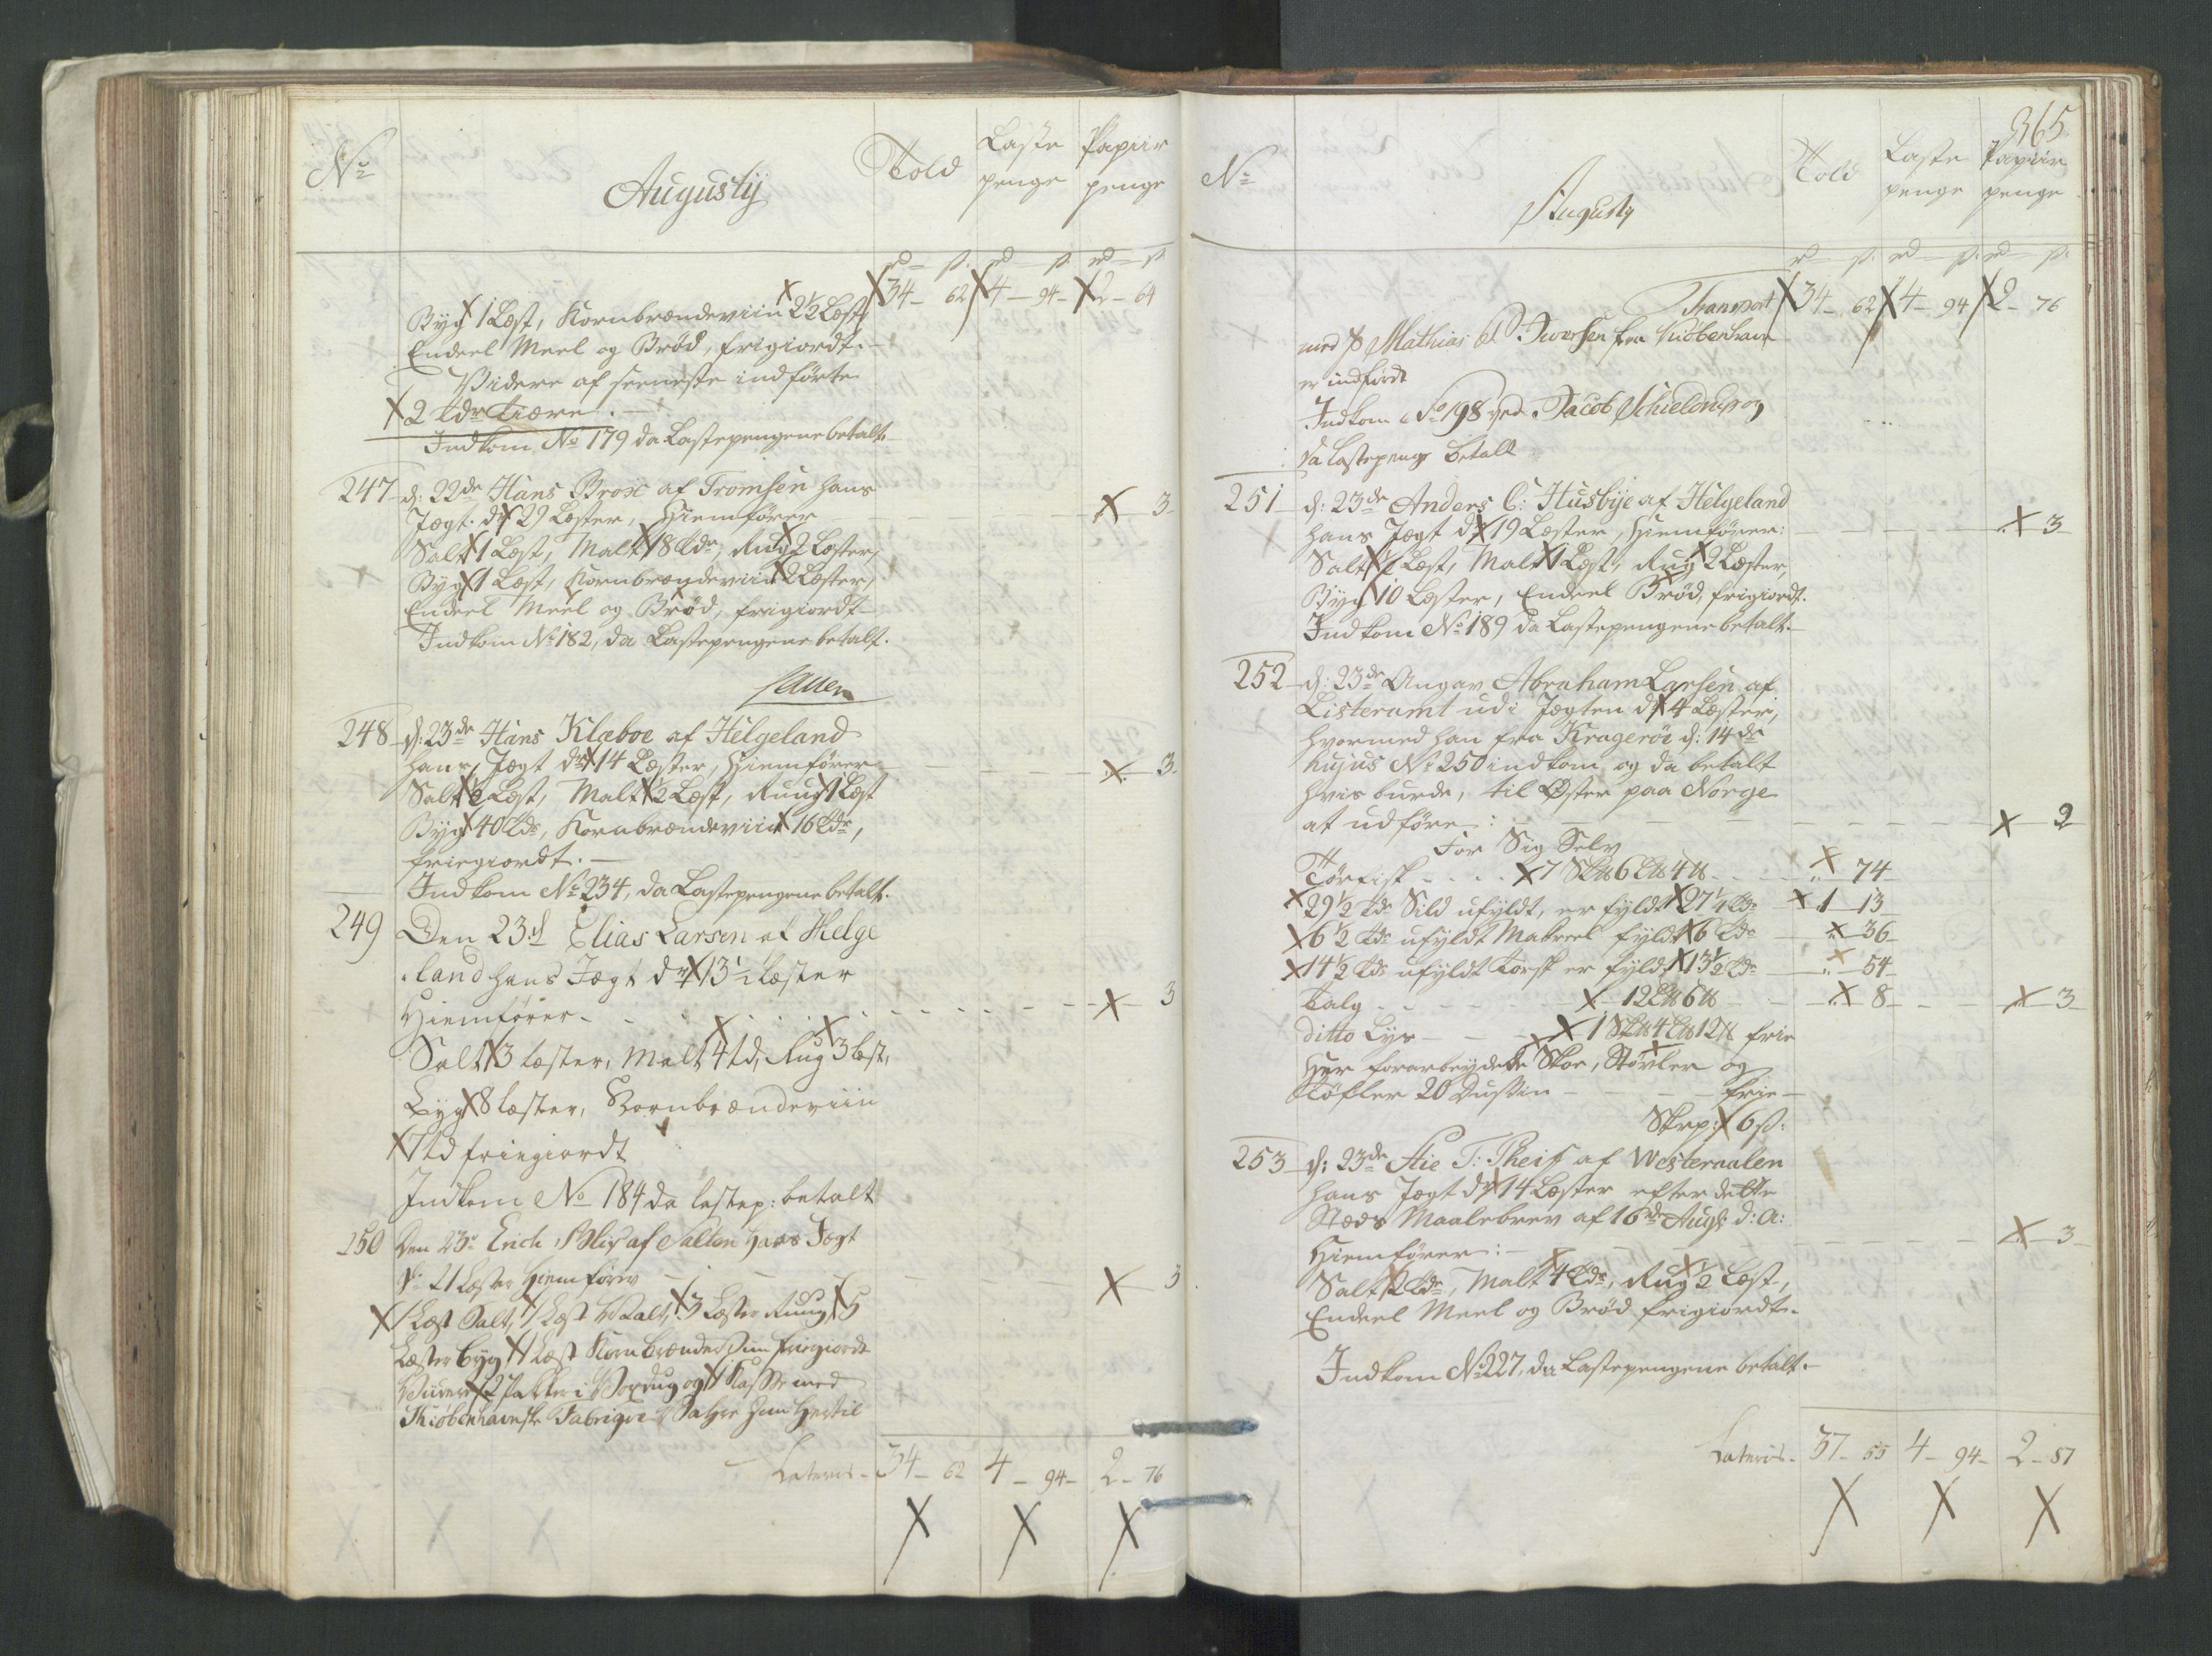 No
Augustij
Told
Laste
penge
Papiir
penge
rd ß rd ß rd ß
34 - 62 4 - 94 - 2 - 64
Byg 1 Læst, Kornbrændeviin 2 1/2 Læst,
Endeel Meel og Brød, frigiordt.
Videre af seeneste indførte
2 tdr tiære.
Indkom No 179 da Lastepengene betalt.
247 d: 22de Hans Brox af Tromsen hans
Jægt. dr 29 Læster, Hiemfører 3
Salt 1 Læst, Malt 18 tdr, Rug 2 Læster,
Byg 1 Læst, Kornbrændeviin 2 Læster,
Endeel Meel og Brød, frigiordt
Indkom No 182, da Lastepengene betalt.
248 d: 23de Hans Klæboe af Helgeland
hans Jægt dr 14 Læster, Hiemfører 3
Salt 1/2 Læst, Malt 1/2 Læst, Ruug 1 Læst
Byg 40 tdr, Kornbrændeviin 16 tdr,
friegiordt.
Indkom No 234, da Lastepengene betalt.
249 Den 23d Elias Larsen af Helge
land hans Jægt dr 13 1/2 læster
Hiemfører 3
Salt 3 læster, Malt 4 td, Rug 3 læst,
Byg 8 læster, Kornbrændeviin
7 td friegiordt
Indkom No 184 da lastep: betalt
250 Den 23de Erich Blix af Salten Hans Jægt
dr 21 Læster Hiemfører 3
1 Læst Salt, 1 Læst Malt, 3 Læster Ruug, 5
Læster Byg, 1 Læst Kornbrændeviin friegiordt
Viidere 2 Pakker i Voxdug og 1 Kasse med
Kiøbenhavnske Fabriqve Vahre som Hertil
Lateris - 34 - 62 4 - 94 - 2 - 76
365
No
Augustij
Told
Laste
penge
Papiir
penge
rd ß rd ß rd ß
Transport 34 - 62 4 - 94 2 - 76
med Mathias Iversen fra Kiøbenhavn
er indførdt
Indkom No 198 ved Jacob Schieldrup og
da Lastepenge betalt
251 d: 23de Anders C: Husbye af Helgeland
hans Jægt dr 19 Læster, Hiemfører: 3
Salt 1/2 Læst, Malt 1 Læst, Rug 2 Læster,
Byg 10 Læster, Endeel Brød, frigiordt.
Indkom No 189 da Lastepengene betalt.
252 d: 23de Angav Abraham Larsen af
Listeramt udi Jægten dr 4 Læster,
hvormed han fra Kragerøe d: 14de
hujus No 250 indkom og da betalt
hvis burde, til Øster paa Norge
at udføre: 2
For Sig Selv
Tørfisk 7 Sk℔ 6 L℔ 4 ℔ 74
29 1/2 tdr Sild ufyldt, er fyldt 27 1/4 tdr 1 13
6 1/2 tdr ufyldt Makreel fyldt 6 tdr 36
14 1/2 tdr ufyldt Torsk er fyldt 13 1/2 tdr 54
Talg 12 L℔ 6 ℔ 8 3
ditto Lys 1 Sk℔ 4 L℔ 12 ℔ frie
Her forarbeydede Skoe, Støvler og
Tøfler 20 Dussin frie
Skrp: 6 ß:
253 d: 23de Hie T: Theis af Westeraalen
hans Jægt dr 14 Læster efter dette
Stæds Maalebrev af 16de Aug: d: A:
Hiemfører: 3
Salt 2 tdr, Malt 4 tdr, Rug 1/2 Læst,
Endeel Meel og Brød frigiordt.
Indkom No 227, da Lastepengene betalt.
Lateris - 37 - 55 4 - 94 - 2 - 87